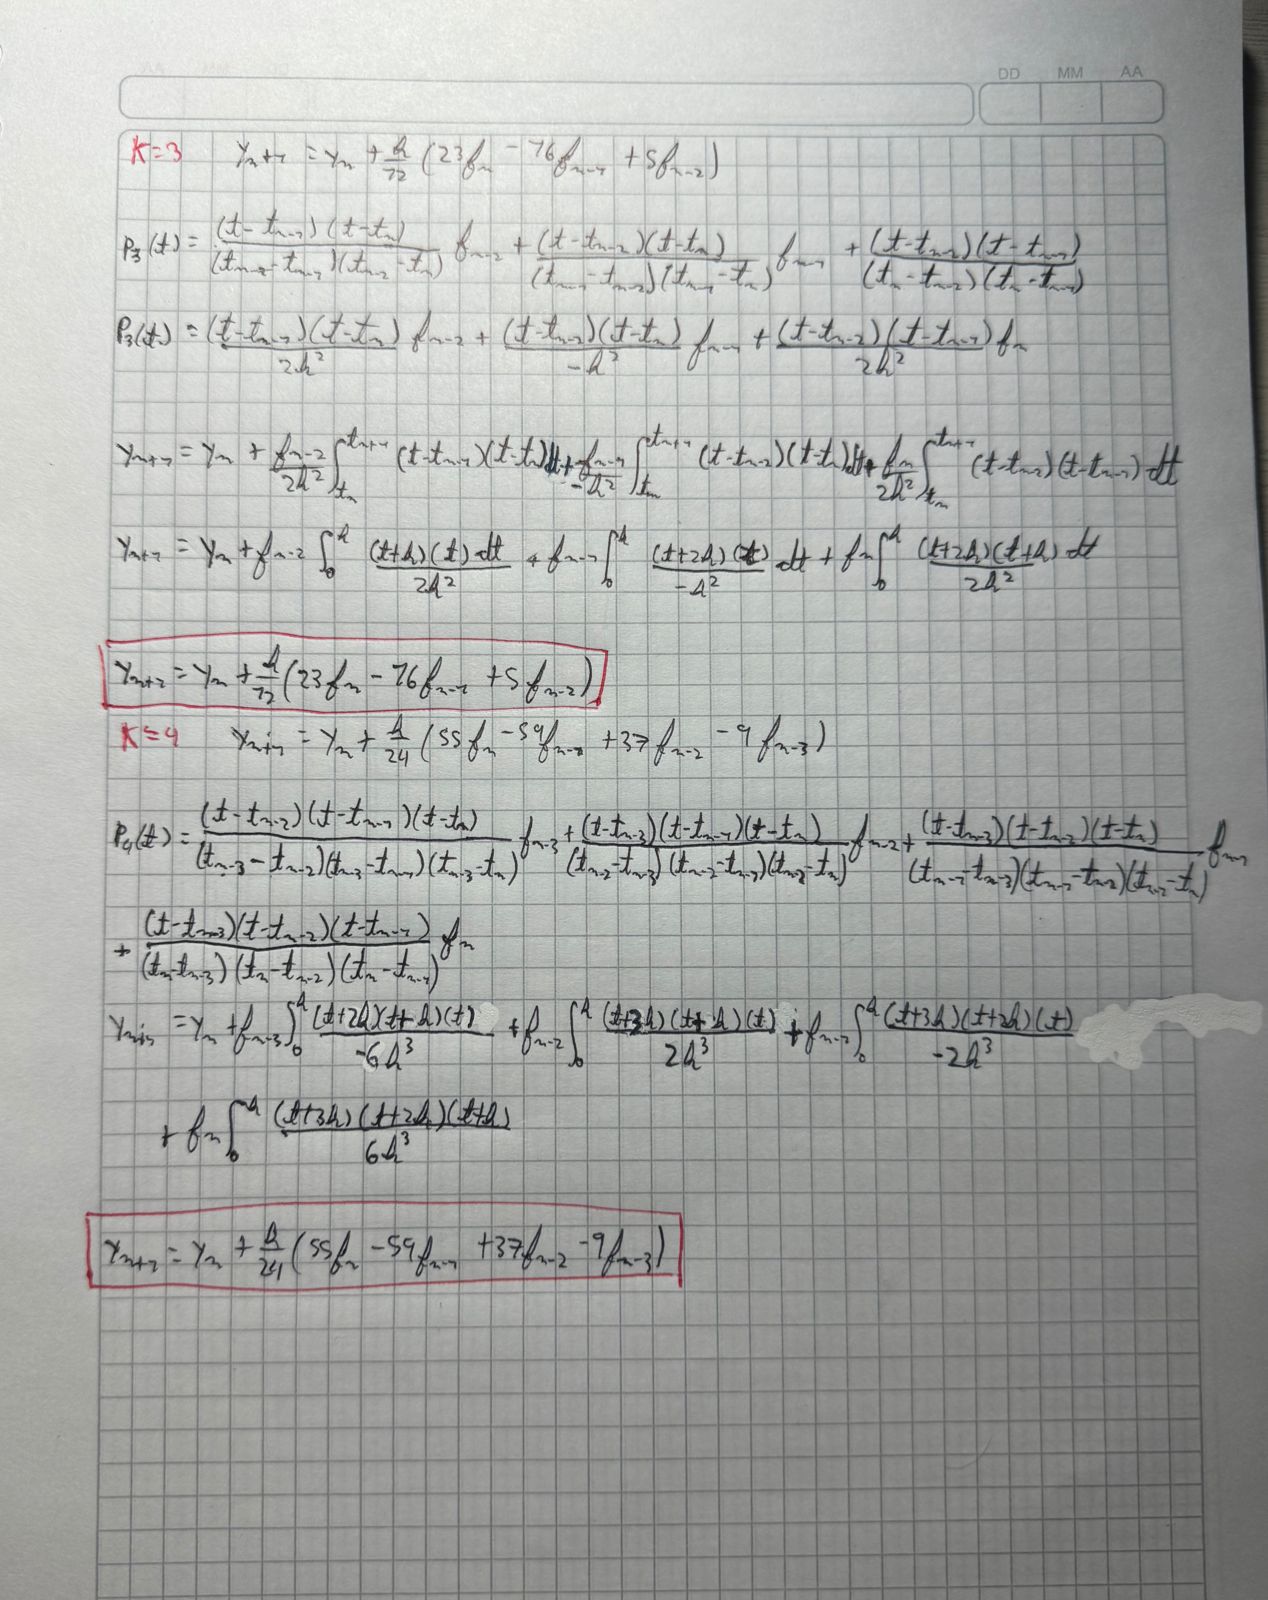 DD MM AA
K=3 y_{n+1} = y_n + h/12 (23f_n - 16f_{n-1} + 5f_{n-2})
P_3(t) = (t-t_{n-1})(t-t_n)/(t_{n-2}-t_{n-1})(t_{n-2}-t_n) f_{n-2} + (t-t_{n-2})(t-t_n)/(t_{n-1}-t_{n-2})(t_{n-1}-t_n) f_{n-1} + (t-t_{n-2})(t-t_{n-1})/(t_n-t_{n-2})(t_n-t_{n-1})
P_3(t) = (t-t_{n-1})(t-t_n)/2h² f_{n-2} + (t-t_{n-2})(t-t_n)/-h² f_{n-1} + (t-t_{n-2})(t-t_{n-1})/2h² f_n
y_{n+1} = y_n + f_{n-2}/2h² ∫_{t_n}^{t_{n+1}} (t-t_{n-1})(t-t_n)dt + f_{n-1}/-h² ∫_{t_n}^{t_{n+1}} (t-t_{n-2})(t-t_n)dt + f_n/2h² ∫_{t_n}^{t_{n+1}} (t-t_{n-2})(t-t_{n-1}) dt
y_{n+1} = y_n + f_{n-2} ∫_0^h (t+h)(t) dt/2h² + f_{n-1} ∫_0^h (t+2h)(t)/-h² dt + f_n ∫_0^h (t+2h)(t+h)/2h² dt
y_{n+1} = y_n + h/12 (23f_n - 16f_{n-1} + 5f_{n-2})
K=4 y_{n+1} = y_n + h/24 (55f_n - 59f_{n-1} + 37f_{n-2} - 9f_{n-3})
P_4(t) = (t-t_{n-2})(t-t_{n-1})(t-t_n)/(t_{n-3}-t_{n-2})(t_{n-3}-t_{n-1})(t_{n-3}-t_n) f_{n-3} + (t-t_{n-3})(t-t_{n-1})(t-t_n)/(t_{n-2}-t_{n-3})(t_{n-2}-t_{n-1})(t_{n-2}-t_n) f_{n-2} + (t-t_{n-3})(t-t_{n-2})(t-t_n)/(t_{n-1}-t_{n-3})(t_{n-1}-t_{n-2})(t_{n-1}-t_n) f_{n-1}
+ (t-t_{n-3})(t-t_{n-2})(t-t_{n-1})/(t_n-t_{n-3})(t_n-t_{n-2})(t_n-t_{n-1}) f_n
y_{n+1} = y_n + f_{n-3} ∫_0^h (t+2h)(t+h)(t)/-6h³ + f_{n-2} ∫_0^h (t+3h)(t+h)(t)/2h³ + f_{n-2} ∫_0^h (t+3h)(t+2h)(t)/-2h³
+ f_n ∫_0^h (t+3h)(t+2h)(t+h)/6h³
y_{n+1} = y_n + h/24 (55f_n - 59f_{n-1} + 37f_{n-2} - 9f_{n-3})